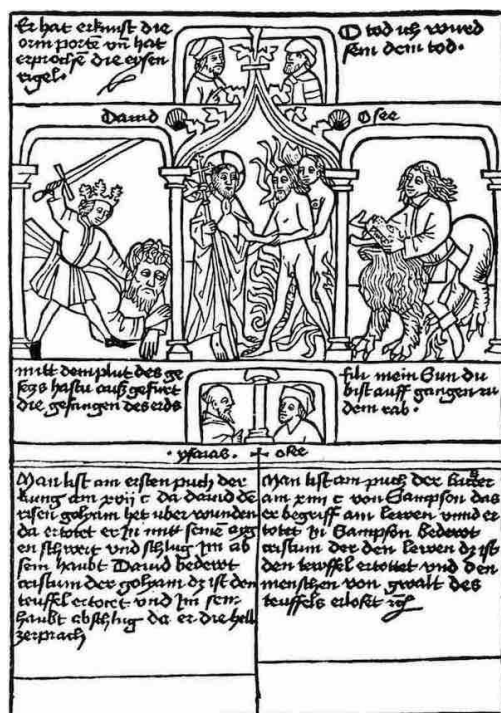 Er hat erknist die
orin porte vn̄ hat
erprochē die eysen
rigel·
O tod ich wurd
sein dein tod·
Dauid
Osee
mitt dem plut des ge
sezs hastu auß gefürt
die gefangen des
fili mein Sun du
bist auff gangen zu
dem rab·
·ysaias·
oke
Man list am ersten puch der
kung am xvij c da dauid de
risen goliam het uber wunden
da ertotet er In mitt seinē
en schwert vnd schlug Im ab
sein haubt Dauid bedewt
cristum der goliam dz ist den
teuffel ertotet vnd Im sein
haubt abschlug da er die hell
zerprach
Man list am puch der
am xiiii c von Sampson das
er begriff ain lewen vnnd er
totet In Sampson bedewt
cristum der den lewen dz ist
den tewffel ertottet vnd den
menschen von gwalt des
teuffels erloset